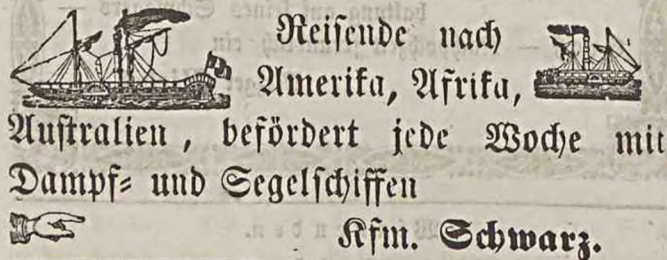 Reisende nach
Amerika, Afrika,
Australien, befördert jede Woche mit
Dampf= und Segelschiffen
Kfm. Schwarz.